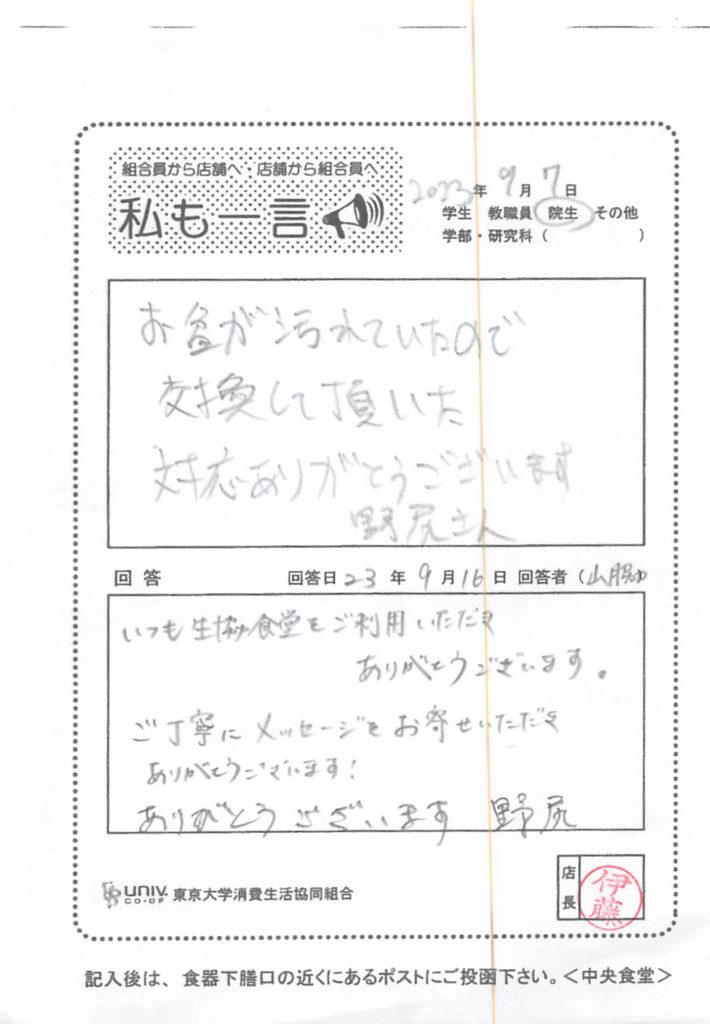 組合員から店舗へ・店舗から組合員へ
私も一言
2023年 9月 7日
学生 教職員 院生 その他
学部・研究科( )
お盆が汚れていたので
交換して頂いた
対応ありがとうございます
野尻さん
回答 回答日 23年 9月16日 回答者(山脇)
いつも生協食堂をご利用いただき
ありがとうございます。
ご丁寧にメッセージをお寄せいただき
ありがとうございます!
ありがとうございます 野尻
UNIV. CO-OP 東京大学消費生活協同組合
店長 伊藤
記入後は、食器下膳口の近くにあるポストにご投函下さい。<中央食堂>